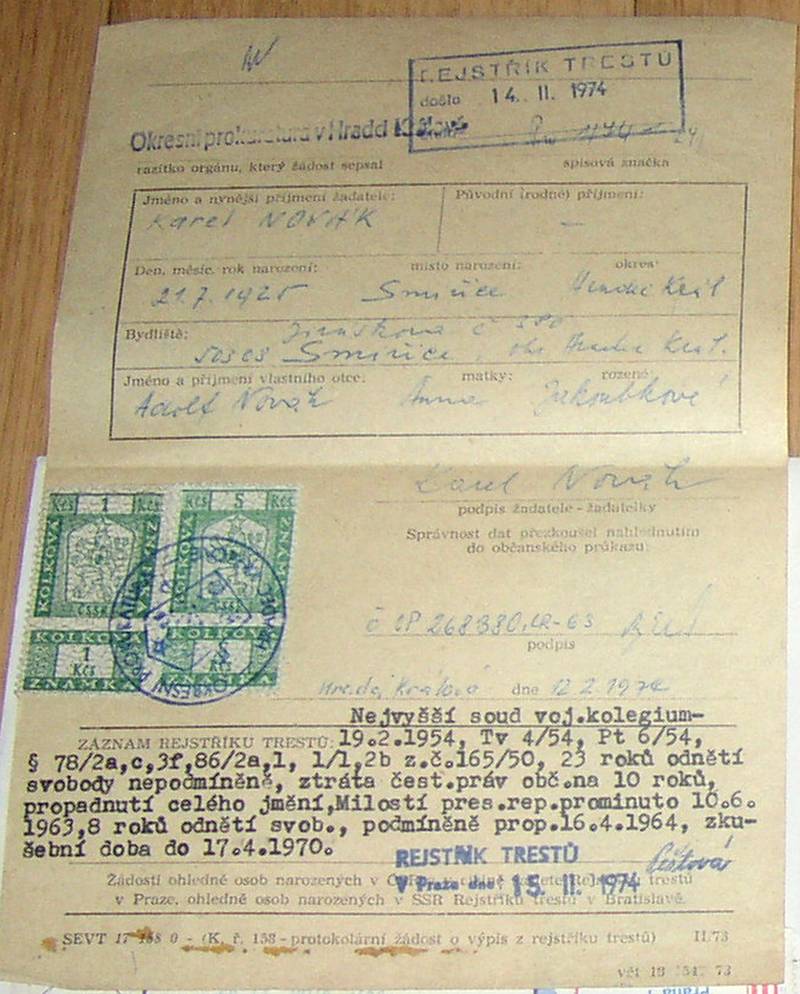 REJSTŘÍK TRESTŮ
došlo 14. II. 1974
Okresní prokuratura v Hradci Králové
razítko orgánu, který žádost sepsal spisová značka
Jméno a nynější příjmení žadatele: Původní (rodné) příjmení:
Karel NOVÁK —
Den, měsíc, rok narození: místo narození: okres:
21.7.1925 Smiřice Hradec Král
Bydliště: Jiráskova č 390
50303 Smiřice, okr. Hradec Král.
Jméno a příjmení vlastního otce: matky: rozené:
Adolf Novák Anna Jakoubkové
Karel Novák
podpis žadatele - žadatelky
Správnost dat přezkoušel nahlédnutím
do občanského průkazu:
Kčs 1 Kčs Kčs 5 Kčs
KOLKOVÁ ZNÁMKA KOLKOVÁ ZNÁMKA
ČSSR ČSSR
KOLKOVÁ KOLKOVÁ
1 5
Kčs Kčs
ZNÁMKA
OKRESNÍ
č OP 268380
podpis
Hradec Králové dne 12 2 1974
Nejvyšší soud voj.kolegium-
ZÁZNAM REJSTŘÍKU TRESTŮ: 19.2.1954, Tv 4/54, Pt 6/54,
§ 78/2a,c,3f,86/2a,1, 1/1,2b z.č.165/50, 23 roků odnětí
svobody nepodmíněně, ztráta čest.práv obč.na 10 roků,
propadnutí celého jmění,Milostí pres.rep.prominuto 10.6.
1963,8 roků odnětí svob., podmíněně prop.16.4.1964, zku-
šební doba do 17.4.1970.
REJSTŘÍK TRESTŮ
V Praze dne: 15. II. 1974
Žádosti ohledně osob narozených v trestů
v Praze, ohledně osob narozených v SSR Rejstříku trestů v Bratislavě.
SEVT 17 188 0 - (K. ř. 158 - protokolární žádost o výpis z rejstříku trestů) II.73
73